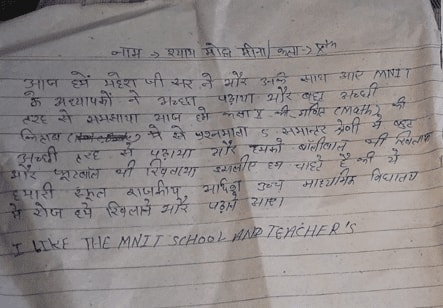 नाम → श्याम मोहन मीना / कक्षा →
आज हमें महेश जी सर ने और उनके साथ आए MNIT
के अध्यापकों ने अच्छा पढ़ाया और बहुत अच्छी
तरह से समझाया आज हमे कक्षा X की गणित (Math) की
किताब में से प्रश्नमाला 5 समान्तर श्रेणी में बहुत
अच्छी तरह से पढ़ाया और हमको वॉलीबाल भी खिलाया
और फुटबाल भी खिलाया इसलीए हम चाहते है की ये
हमारी स्कूल राजकीय उच्च माध्यमिक विधालय
मे रोज हमे खिलाने और पढ़ाने आए।
I LIKE THE MNIT SCHOOL AND TEACHER'S